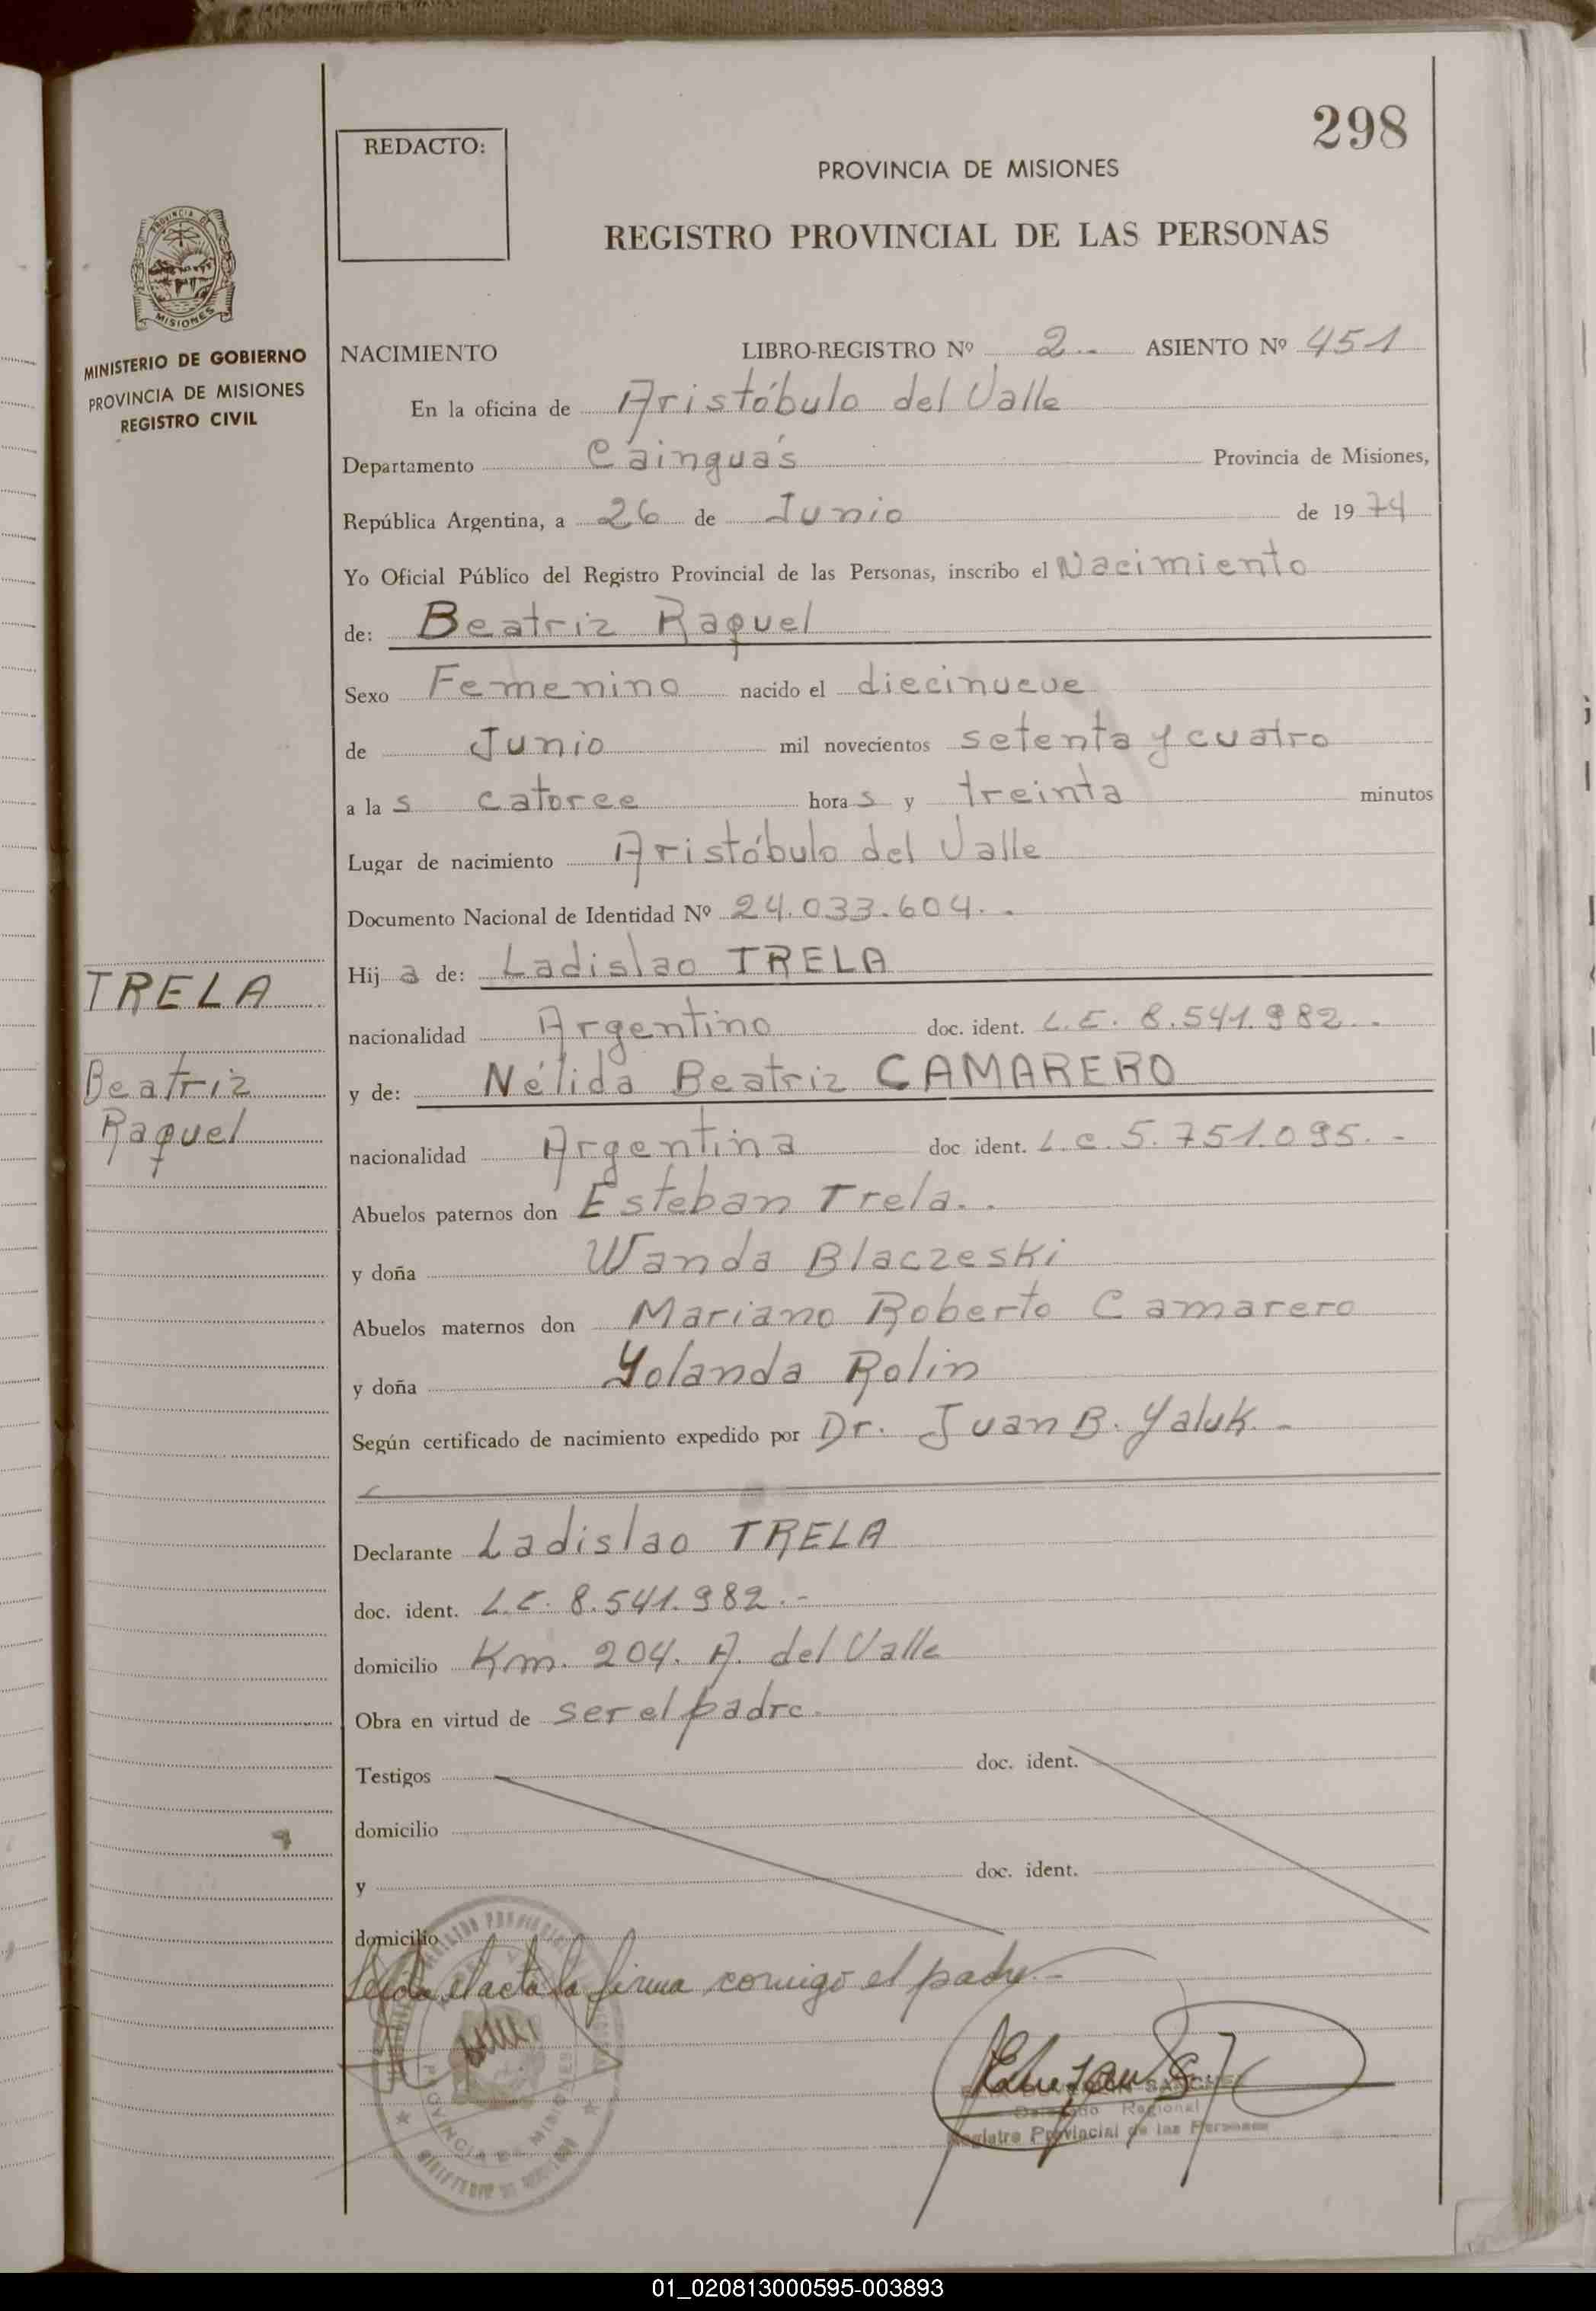 298
REDACTO:
PROVINCIA DE MISIONES
REGISTRO PROVINCIAL DE LAS PERSONAS
PROVINCIA DE
MISIONES
MINISTERIO DE GOBIERNO
PROVINCIA DE MISIONES
REGISTRO CIVIL
NACIMIENTO LIBRO-REGISTRO Nº 2.. ASIENTO Nº 451
En la oficina de Aristóbulo del Valle
Departamento Cainguás Provincia de Misiones,
República Argentina, a 26 de Junio de 1974
Yo Oficial Público del Registro Provincial de las Personas, inscribo el Nacimiento
de: Beatriz Raquel
Sexo Femenino nacido el diecinueve
de Junio mil novecientos setenta y cuatro
a las catorce horas y treinta minutos
Lugar de nacimiento Aristóbulo del Valle
Documento Nacional de Identidad Nº 24.033.604. .
Hija de: Ladislao TRELA
nacionalidad Argentino doc. ident. L.E. 8.541.982. .
y de: Nélida Beatriz CAMARERO
nacionalidad Argentina doc ident. L.C. 5.751.095. -
Abuelos paternos don Esteban Trela. .
y doña Wanda Blaczeski
Abuelos maternos don Mariano Roberto Camarero
y doña Yolanda Rolin
Según certificado de nacimiento expedido por Dr. Juan B. Yaluk. -
TRELA
Beatriz
Raquel
Declarante Ladislao TRELA
doc. ident. L.E. 8.541.982. -
domicilio Km. 204. A. del Valle
Obra en virtud de ser el padre.
Testigos doc. ident.
domicilio
y doc. ident.
domicilio
Leida el acta la firma conmigo el padre. -
Delegado Regional
Registro Provincial de las Personas
01_020813000595-003893